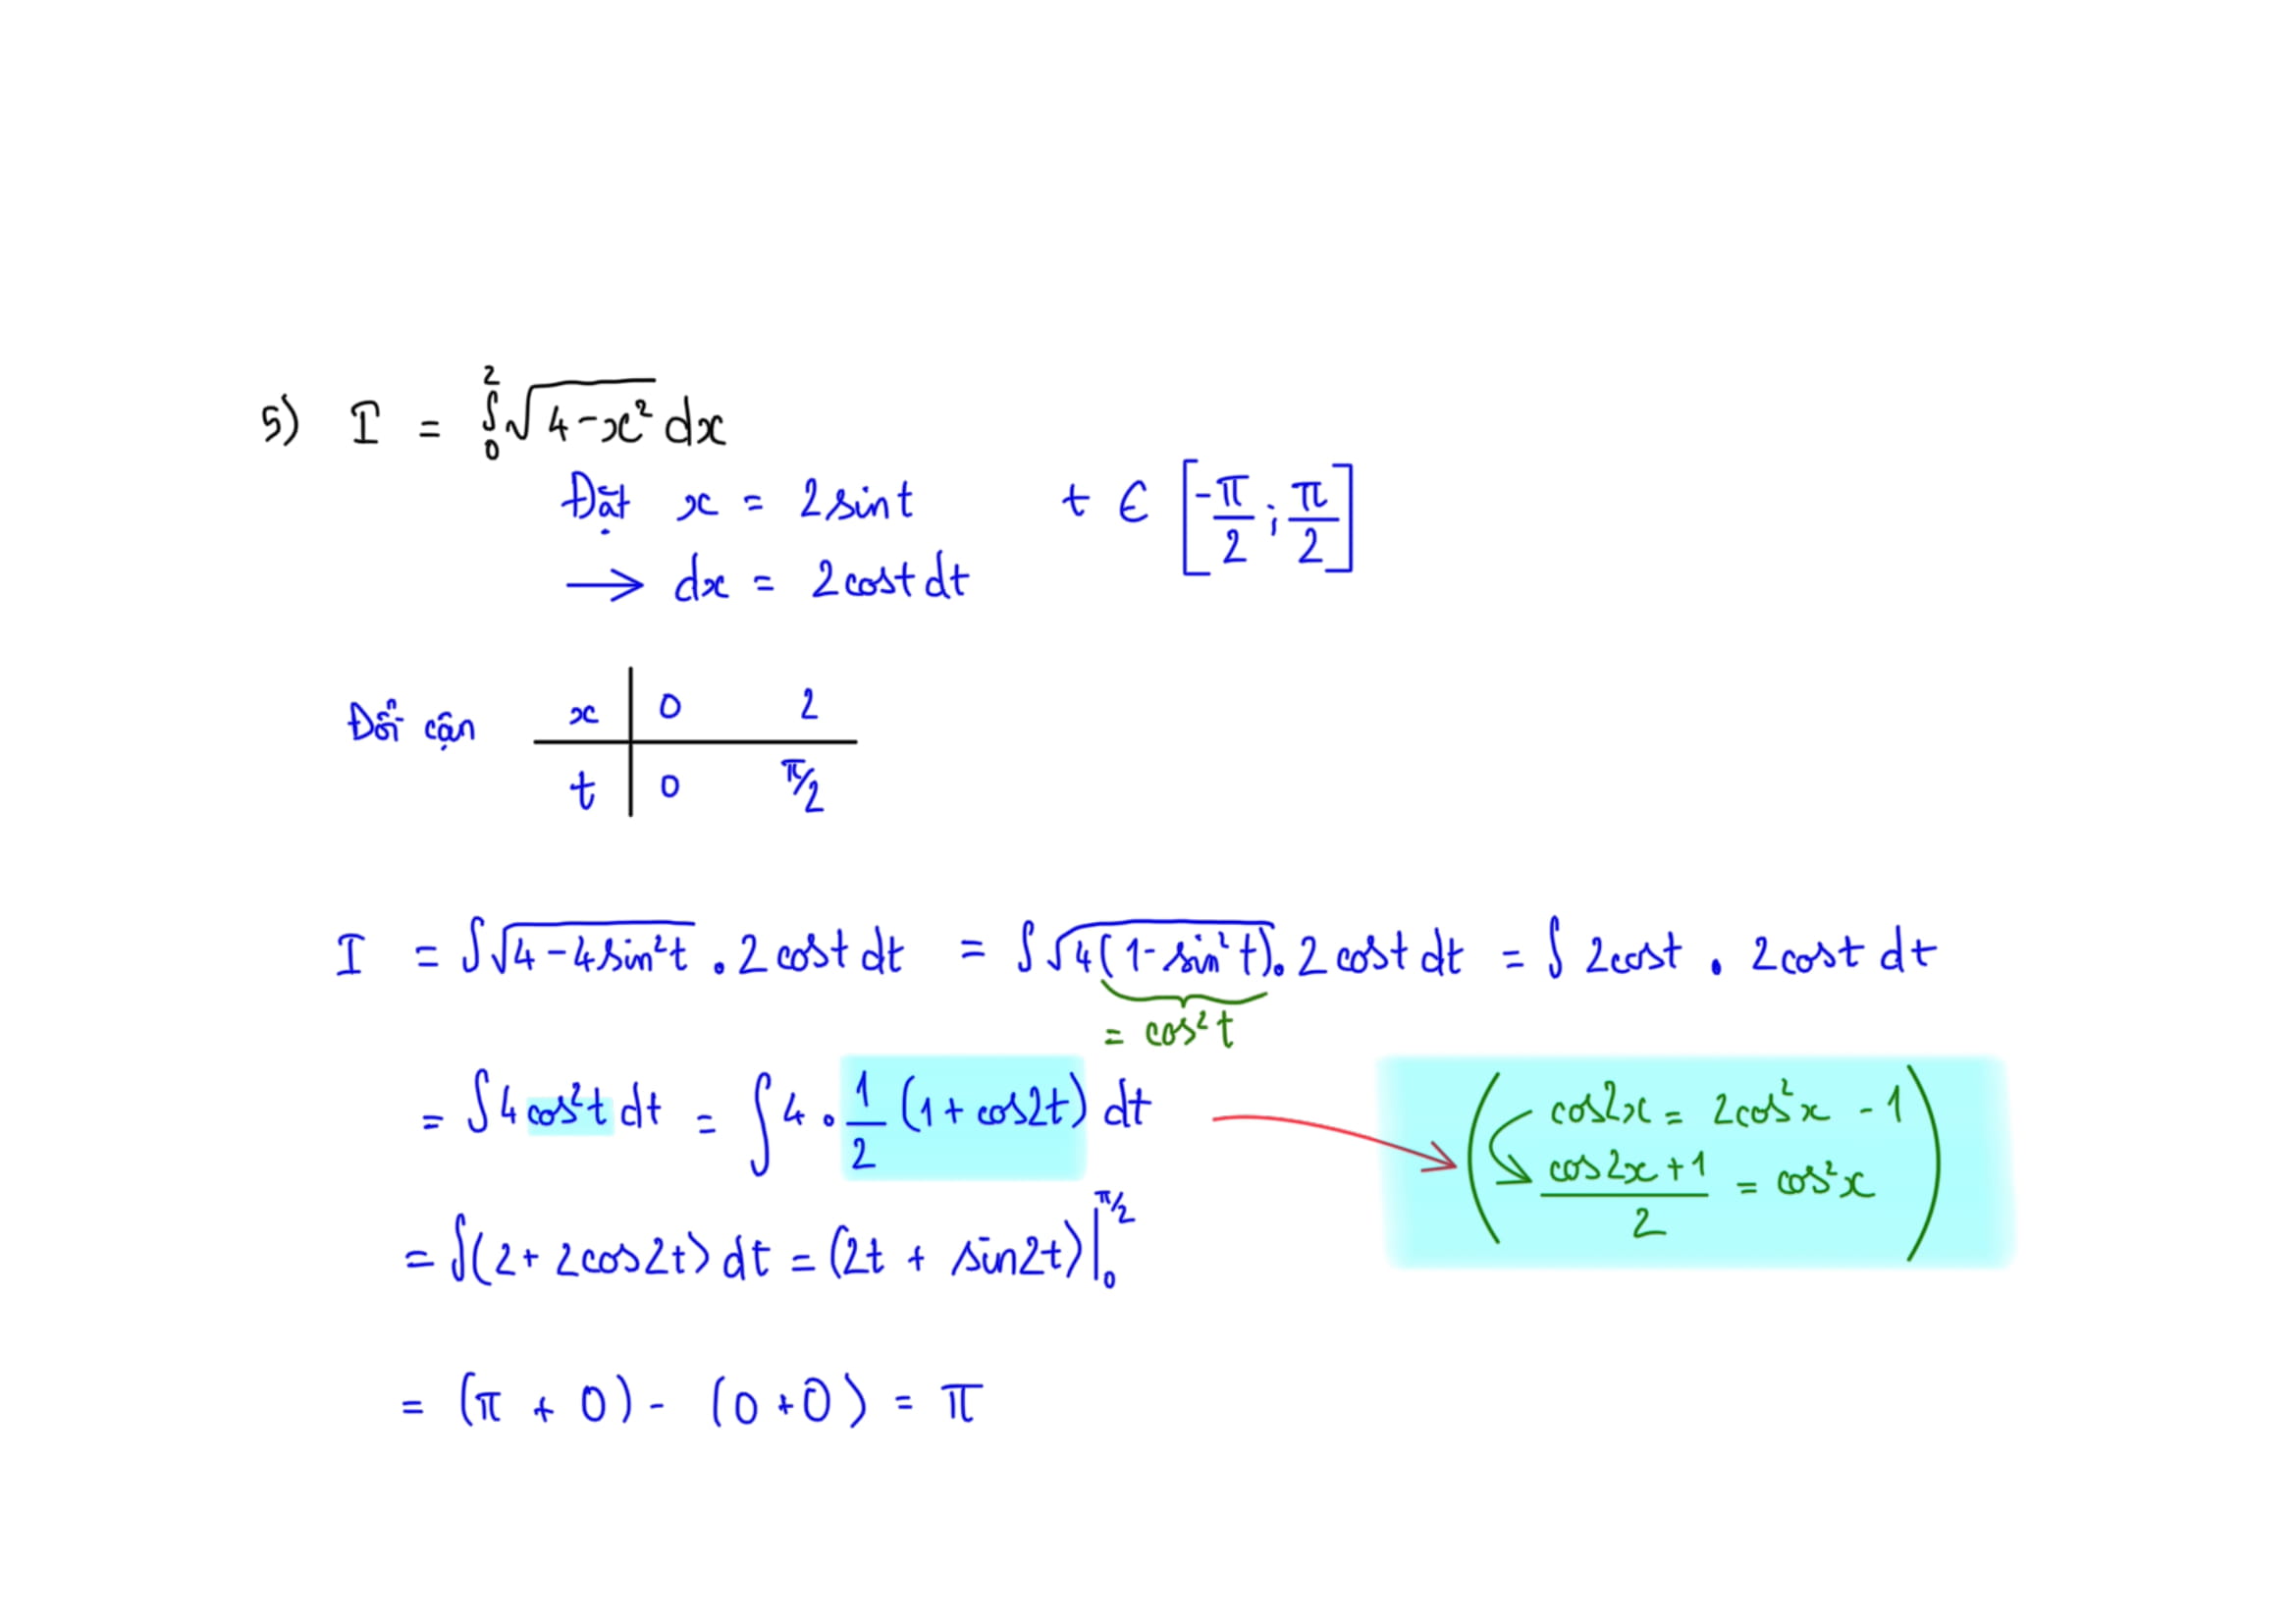 5) I = ∫₀² √(4-x²) dx
Đặt x = 2sint t ∈ [-π/2 ; π/2]
→ dx = 2cost dt
Đổi cận x | 0 2
t | 0 π/2
I = ∫√(4-4sin²t) . 2cost dt = ∫√(4(1-sin²t)) . 2cost dt = ∫ 2cost . 2cost dt
= cos²t
= ∫4cos²t dt = ∫4 . 1/2 (1+cos2t) dt → (cos2x = 2cos²x - 1
(cos2x+1)/2 = cos²x)
= ∫(2+2cos2t) dt = (2t + sin2t)|₀^(π/2)
= (π + 0) - (0+0) = π